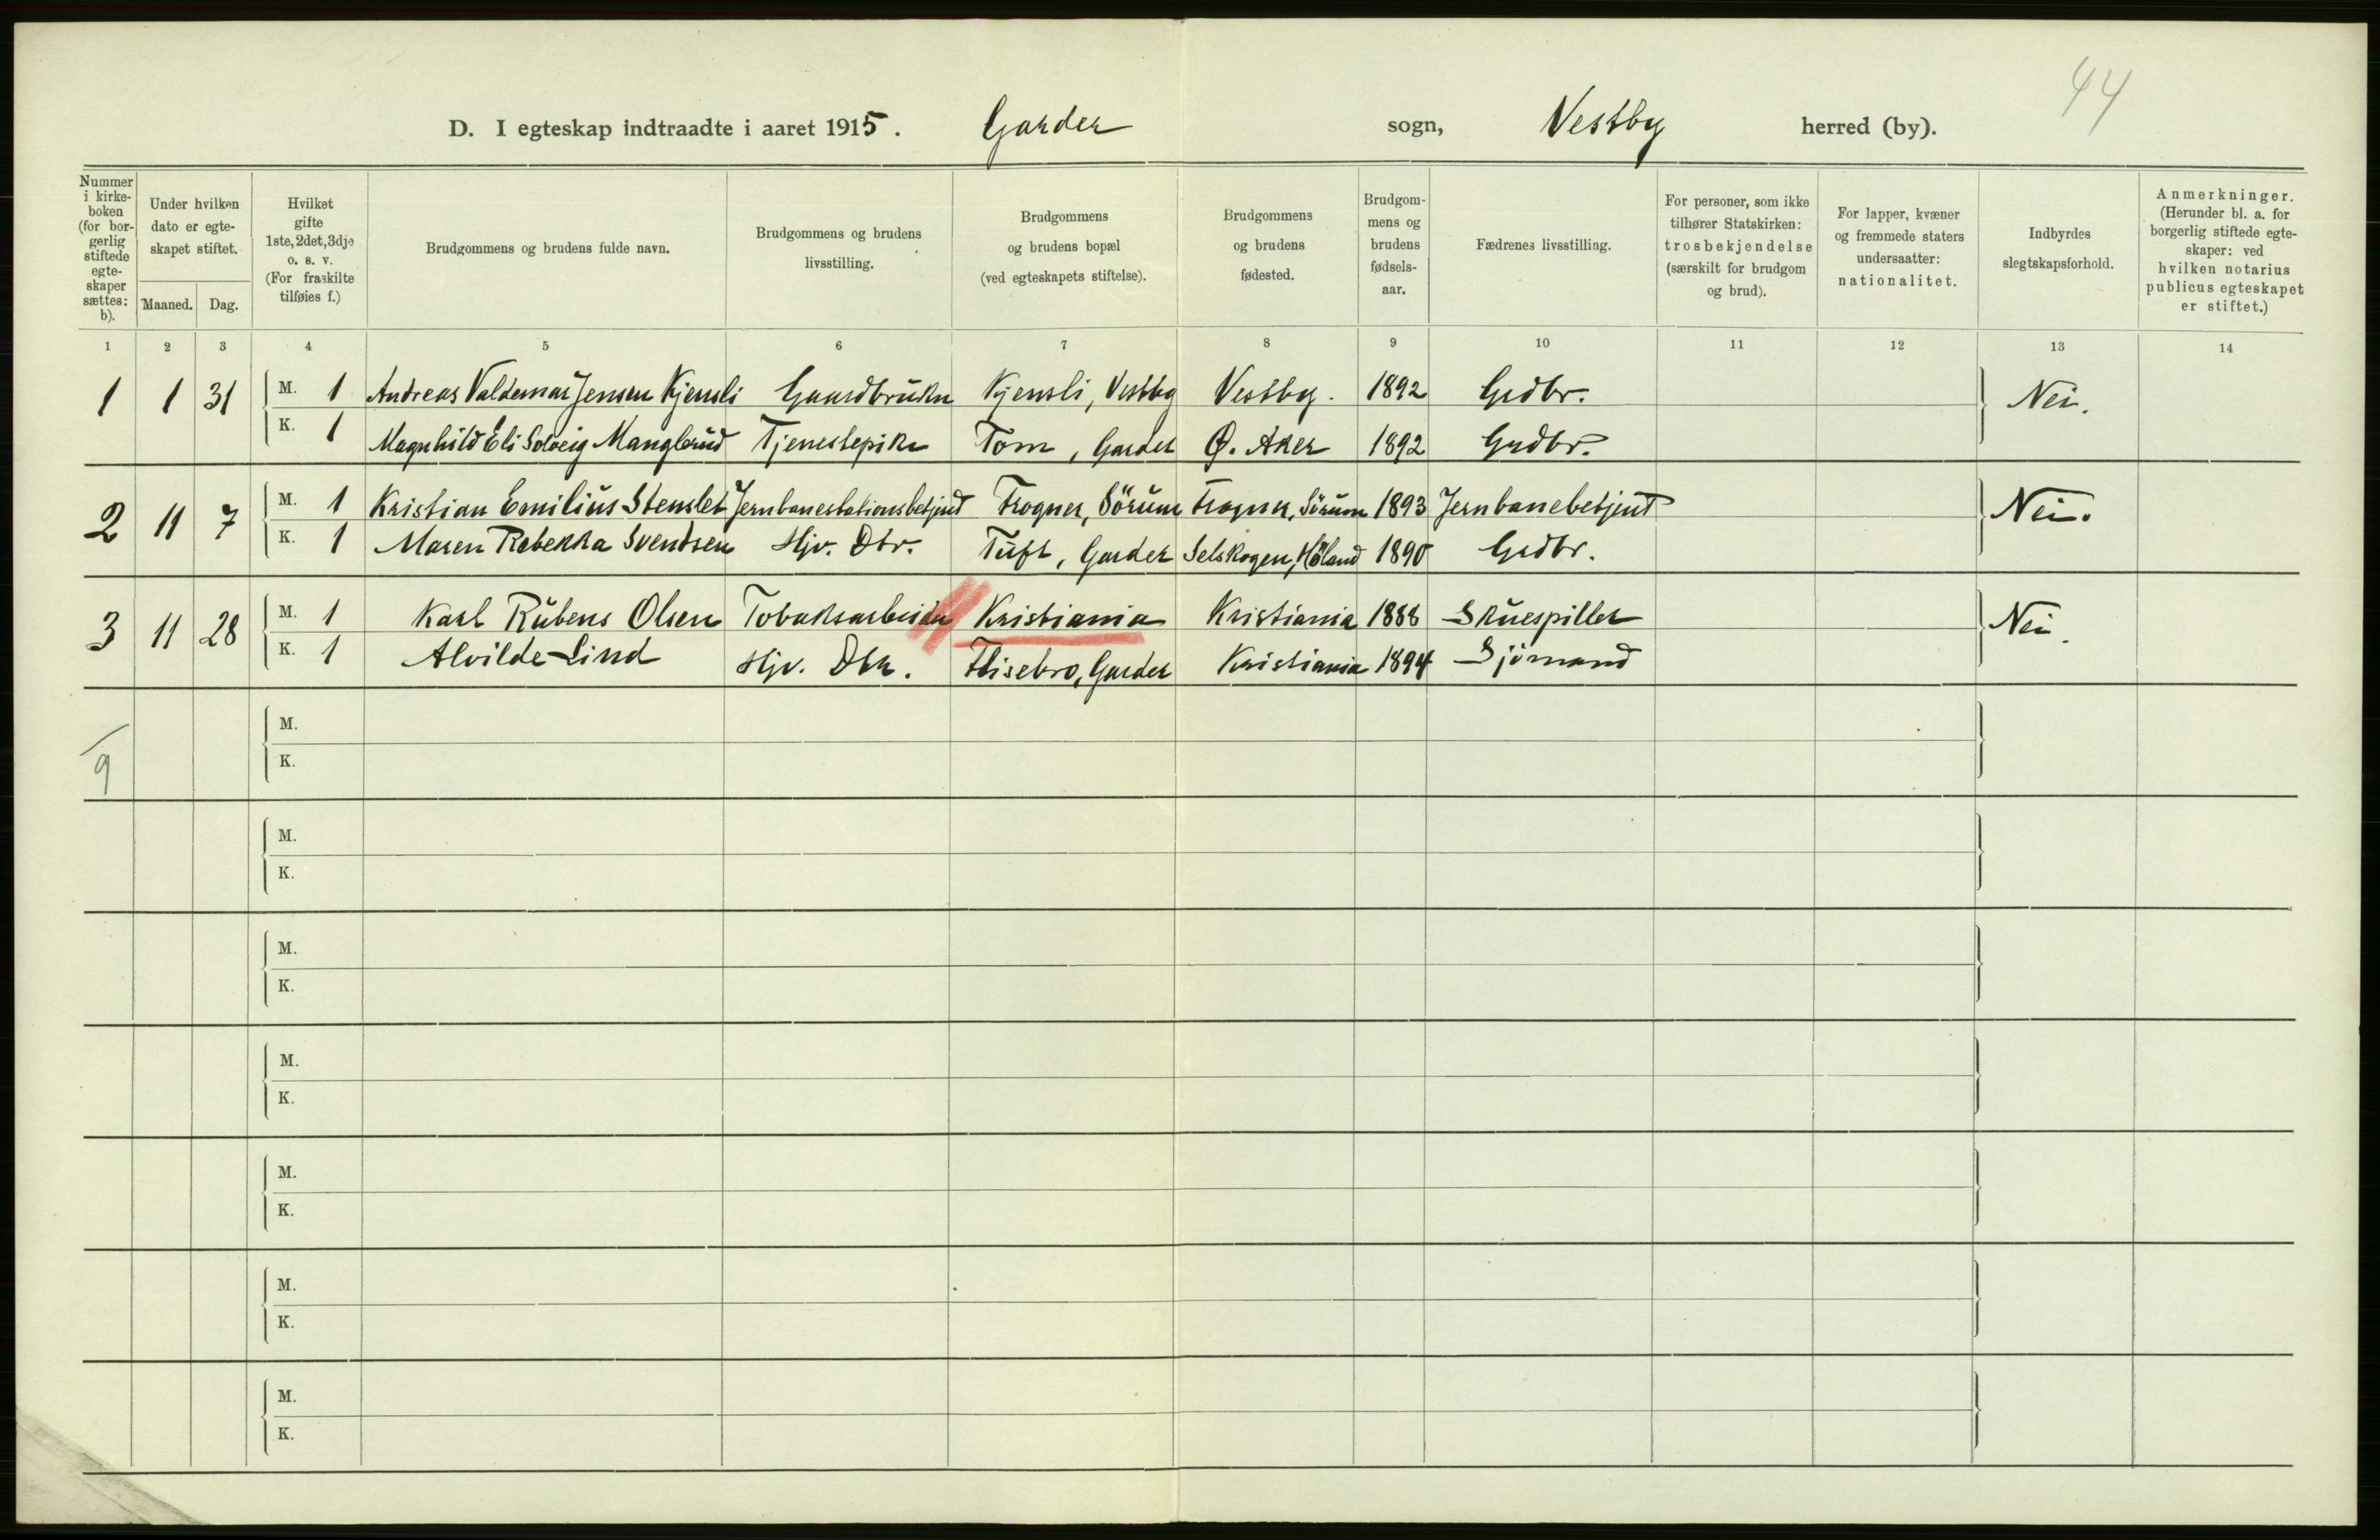 44
D. I egteskap indtraadte i aaret 1915. Garder sogn, Vestby herred (by).
Nummer i kirke-boken (for bor-gerlig stiftede egte-skaper sættes: b).
Under hvilken dato er egte-skapet stiftet.
Maaned. Dag.
Hvilket gifte 1ste, 2det, 3dje o. s. v. (For fraskilte tilføies f.)
Brudgommens og brudens fulde navn.
Brudgommens og brudens livsstilling.
Brudgommens og brudens bopæl (ved egteskapets stiftelse).
Brudgommens og brudens fødested.
Brudgom-mens og brudens fødsels-aar.
Fædrenes livsstilling.
For personer, som ikke tilhører Statskirken: trosbekjendelse (særskilt for brudgom og brud).
For lapper, kvæner og fremmede staters undersaatter: nationalitet.
Indbyrdes slegtskapsforhold.
Anmerkninger. (Herunder bl. a. for borgerlig stiftede egte-skaper: ved hvilken notarius publicus egteskapet er stiftet.)
1 2 3 4 5 6 7 8 9 10 11 12 13 14
1 1 31 M. 1 Andreas Valdemar Jensen Kjensli Gaardbruker Kjensli, Vestby Vestby. 1892 Grdbr. Nei.
K. 1 Magnhild Eli Solveig Manglerud Tjenestepike Tom, Garder Ø. Aker 1892 Grdbr.
2 11 7 M. 1 Kristian Emilius Stenslet Jernbanestationsbetjent Frogner, Sörum Frogner, Sörum 1893 Jernbanebetjent Nei.
K. 1 Maren Rebekka Svendsen Hjv. Dtr. Tuft, Garder Selskogen, Höland 1890 Grdbr.
3 11 28 M. 1 Karl Rubens Olsen Tobaksarbeider Kristiania Kristiania 1888 Skuespiller Nei.
K. 1 Alvilde Lind Hjv. Dtr. Flisebro, Garder Kristiania 1894 Sjömand
M.
9
K.
M.
K.
M.
K.
M.
K.
M.
K.
M.
K.
M.
K.